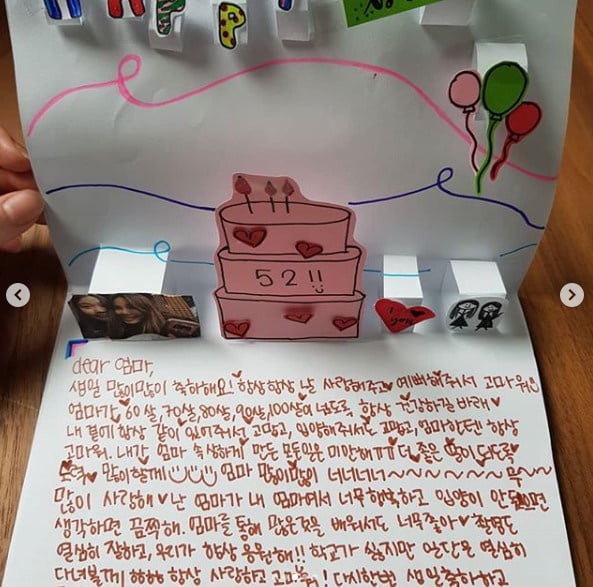 HAPPY
52!!
I ♥ you
dear 엄마,
생일 많이많이 축하해요! 항상항상 날 사랑해주고 예뻐해주셔서 고마워
엄마가 60살, 70살, 80살, 90살, 100살이 넘도록, 항상 건강하길 바래
내 곁에 항상 같이 있어주셔서 고맙고, 입양해주셔서도 고맙고, 엄마한텐 항상
고마워. 내가 엄마 속상하게 만든 모든일은 미안해ㅠㅠ 더 좋은 딸이 되도록
노력 많이할게 엄마 많이많이 너너너너~~~~~~무~~
많이 사랑해 난 엄마가 내 엄마여서 너무행복하고 입양이 안됐으면
생각하면 끔찍해. 엄마를 통해 많은것을 배워서도 너무좋아
열심히 잘하고, 우리가 항상 응원해!! 학교가 싫지만 일단은 열심히
다녀볼게 항상 사랑하고 고마워! 다시한번 생일축하하고